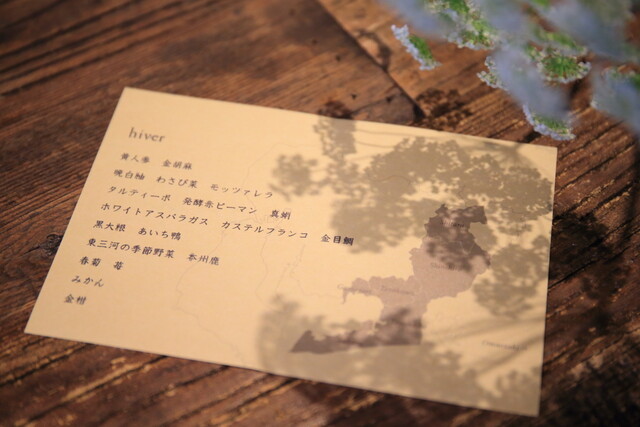 hiver
黄人参 金胡麻
晩白柚 わさび菜 モッツァレラ
タルティーボ 発酵赤ピーマン 真蛸
ホワイトアスパラガス カステルフランコ 金目鯛
黒大根 あいち鴨
東三河の季節野菜 本州鹿
春菊 苺
みかん
金柑